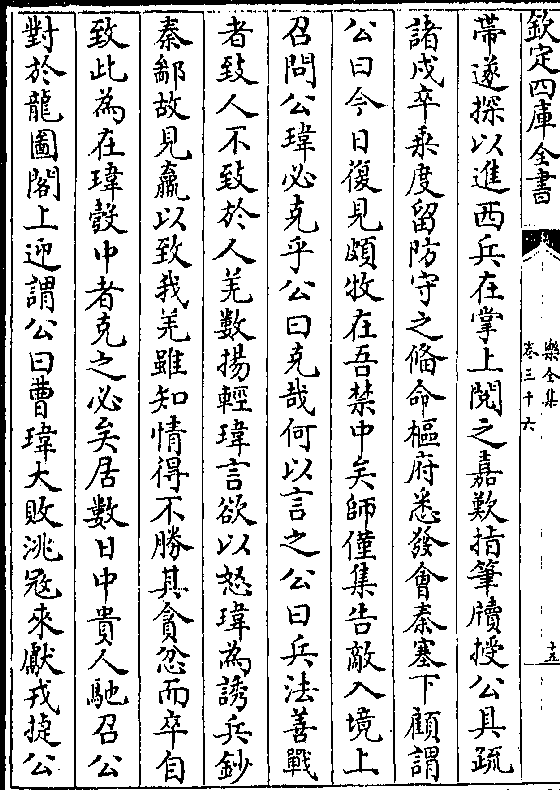 欽定四庫全書
樂全集
卷三十六
十五
帶遂探以進西兵在掌上閱之嘉歎指筆牘授公具疏
諸戍卒乘度留防守之俻命樞府悉發會秦塞下顧謂
公曰今日復見頗牧在吾禁中矣師僅集告敵入境上
召問公瑋必克乎公曰克哉何以言之公曰兵法善戰
者致人不致於人羌數揚輕瑋言欲以怒瑋為誘兵鈔
秦鄙故見羸以致我羌雖知情得不勝其貪忿而卒自
致此為在瑋彀中者克之必矣居數日中貴人馳召公
對於龍圖閣上迎謂公曰曹瑋大敗洮寇來獻戎捷公